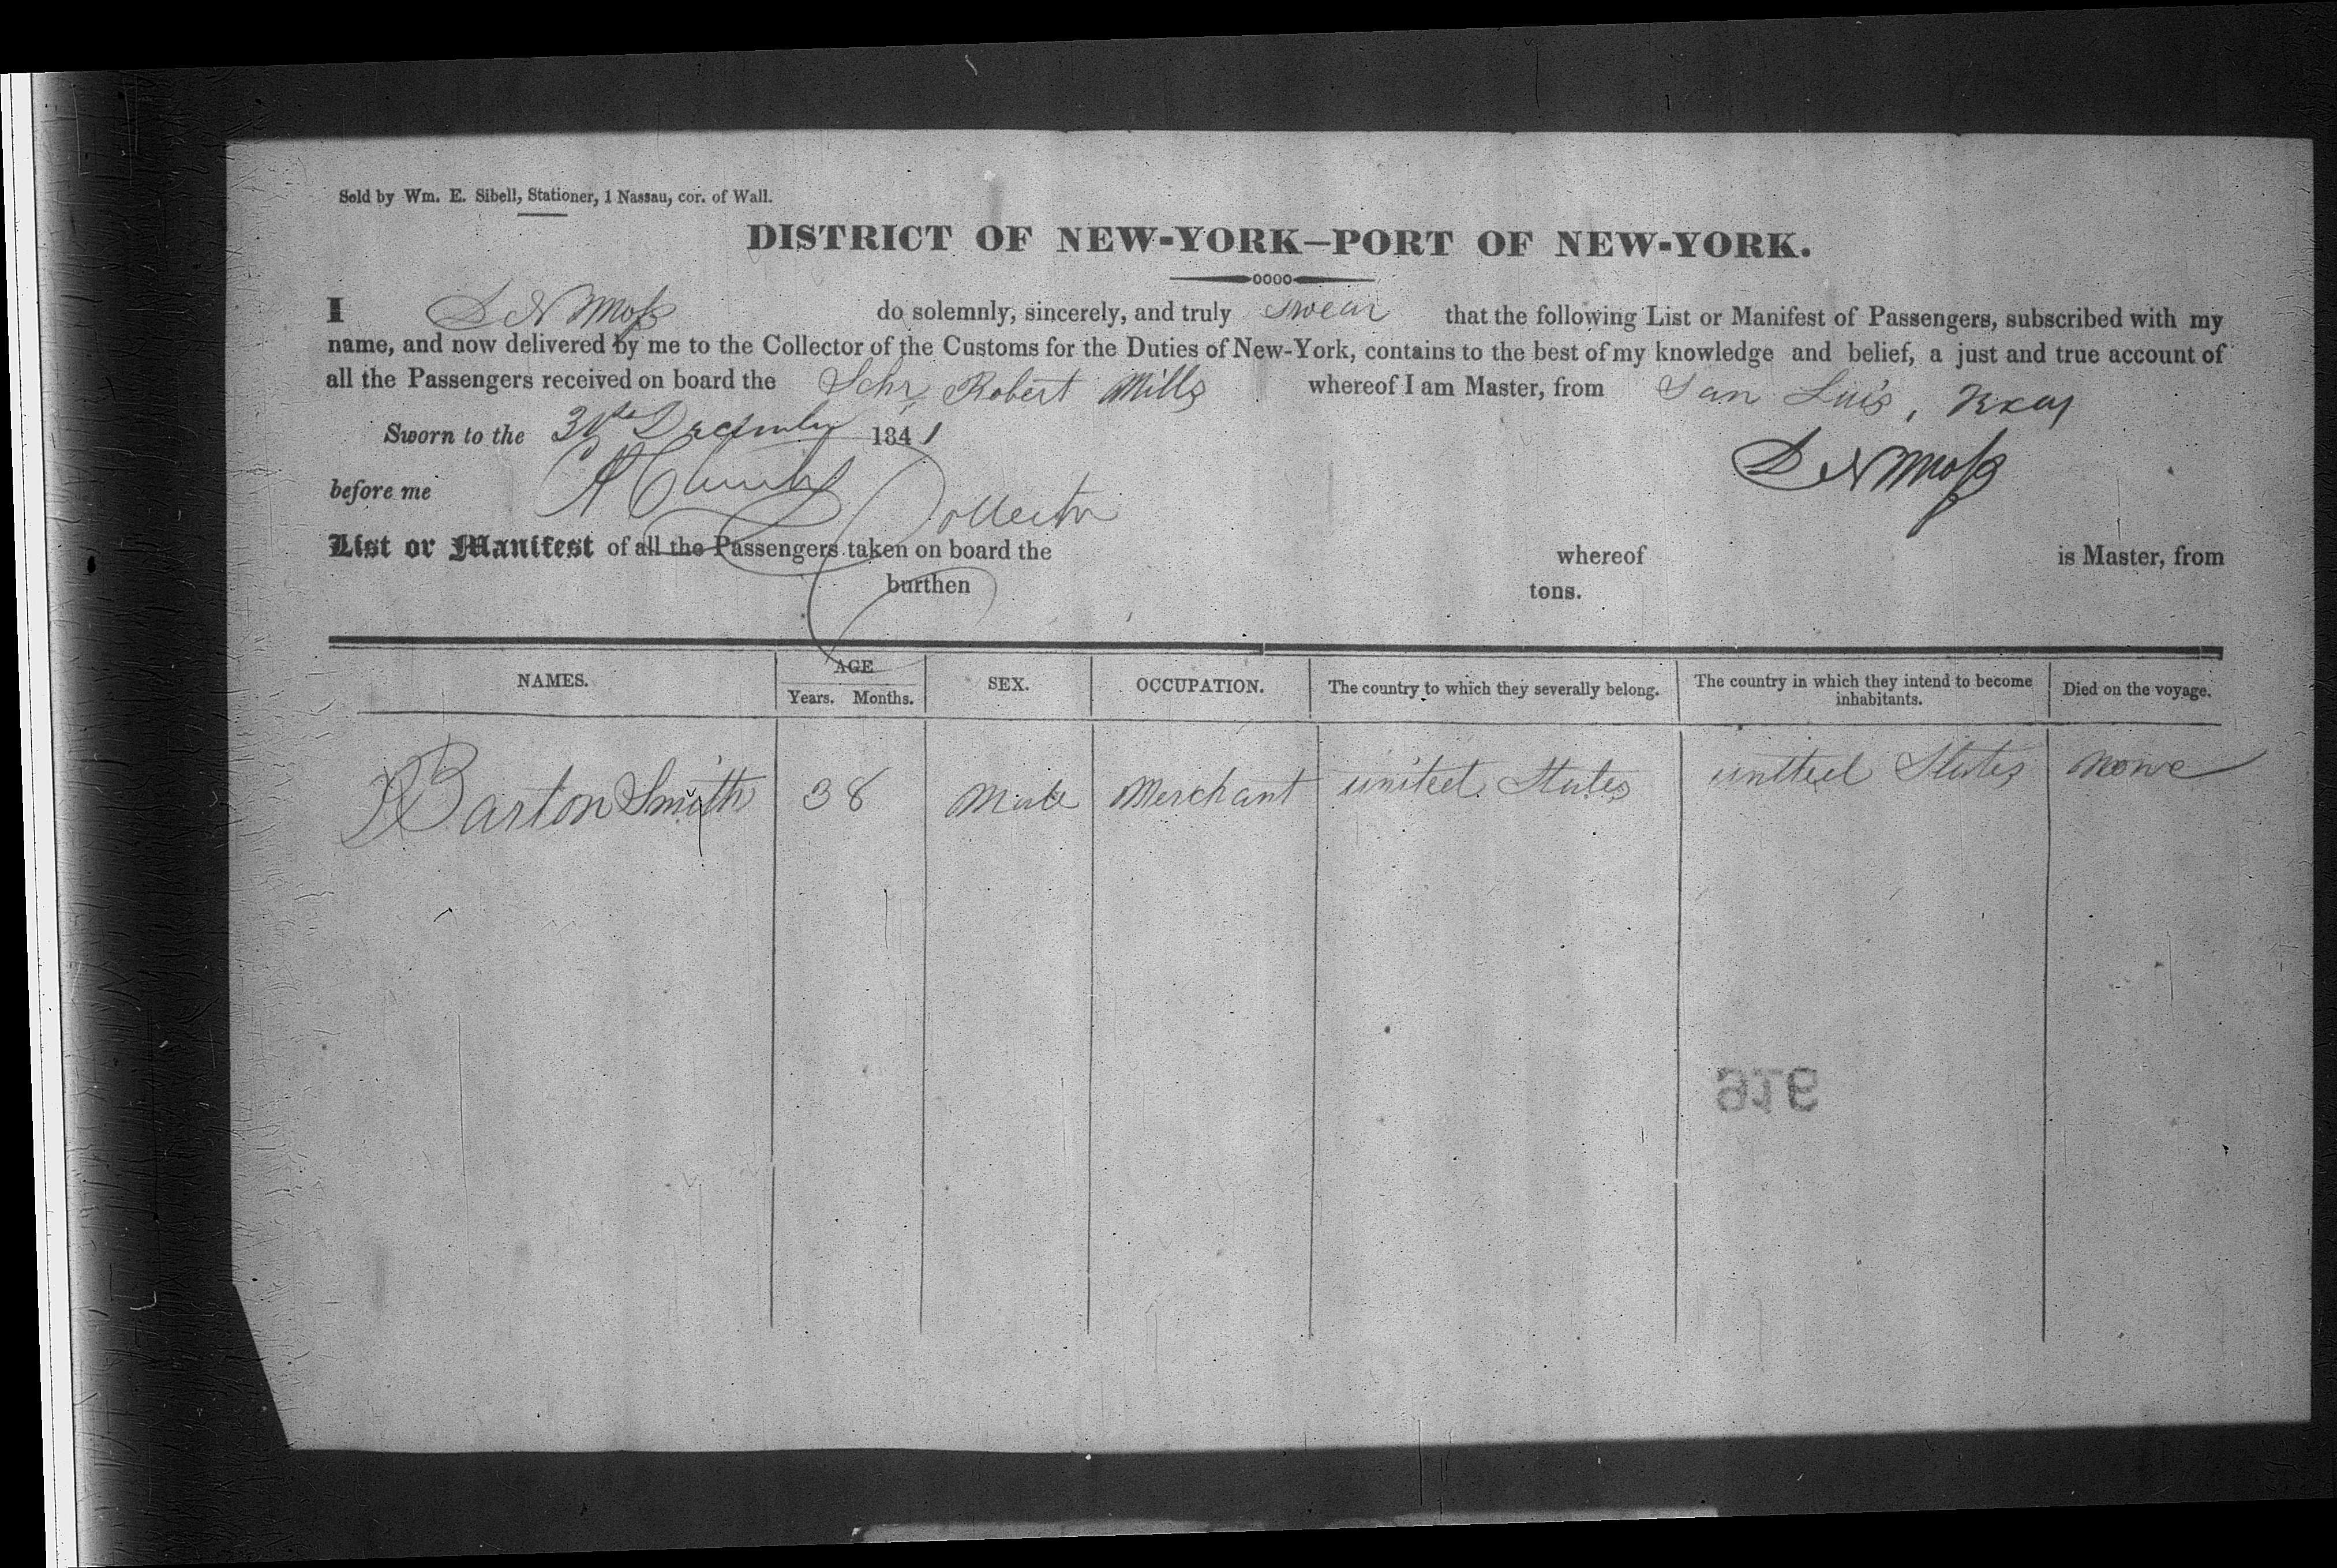 Sold by Wm. E. Sibell, Stationer, 1 Nassau, cor. of Wall.
DISTRICT OF NEW-YORK—PORT OF NEW-YORK.
I D N Moss do solemnly, sincerely, and truly swear that the following List or Manifest of Passengers, subscribed with my
name, and now delivered by me to the Collector of the Customs for the Duties of New-York, contains to the best of my knowledge and belief, a just and true account of
all the Passengers received on board the Schr Robert Mills whereof I am Master, from San Luis, Texas
Sworn to the 31st December 1841
D N Moss
before me Collector
List or Manifest of all the Passengers taken on board the whereof is Master, from
burthen tons.
NAMES. AGE Years. Months. SEX. OCCUPATION. The country to which they severally belong. The country in which they intend to become inhabitants. Died on the voyage.
Barton Smith 38 Male Merchant united States united States None
916